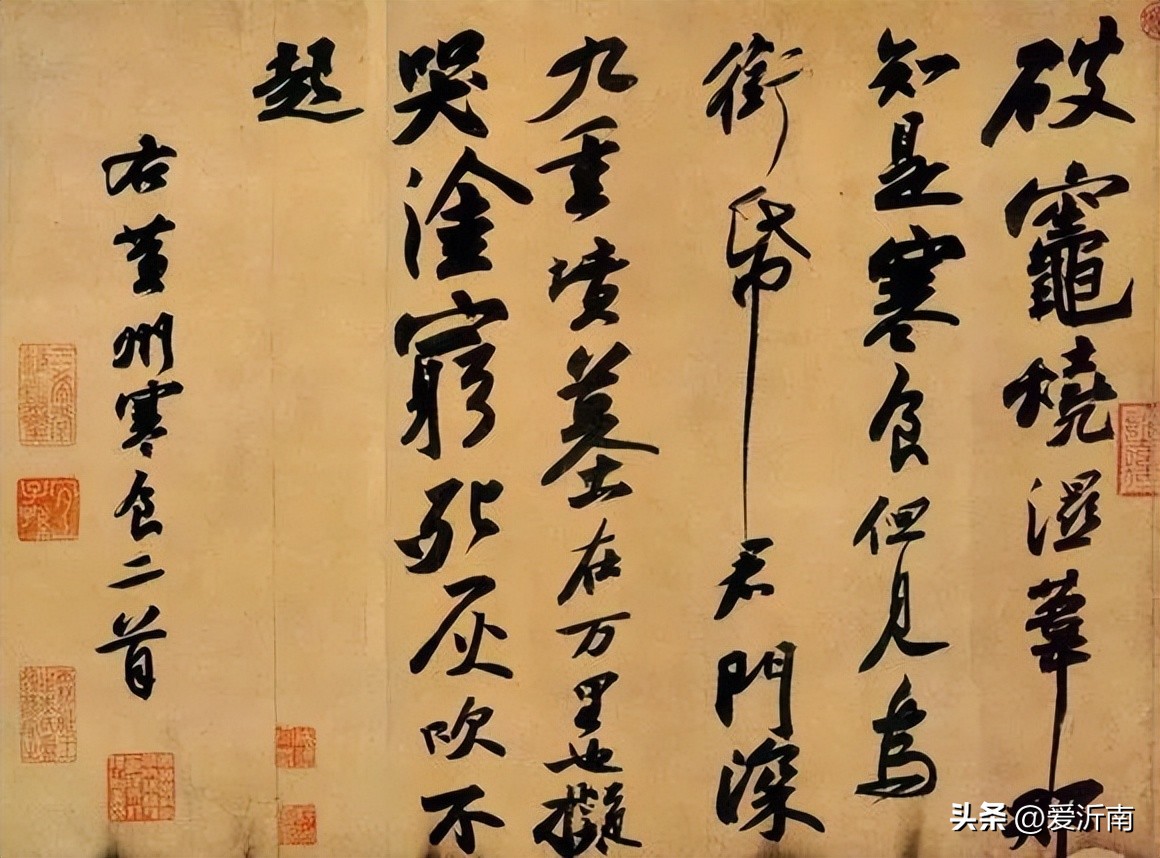 破竈燒濕葦那
知是寒食但見烏
銜帋君門深
九重墳墓在万里也擬
哭塗窮死灰吹不
起
右黄州寒食二首
头条 @爱沂南